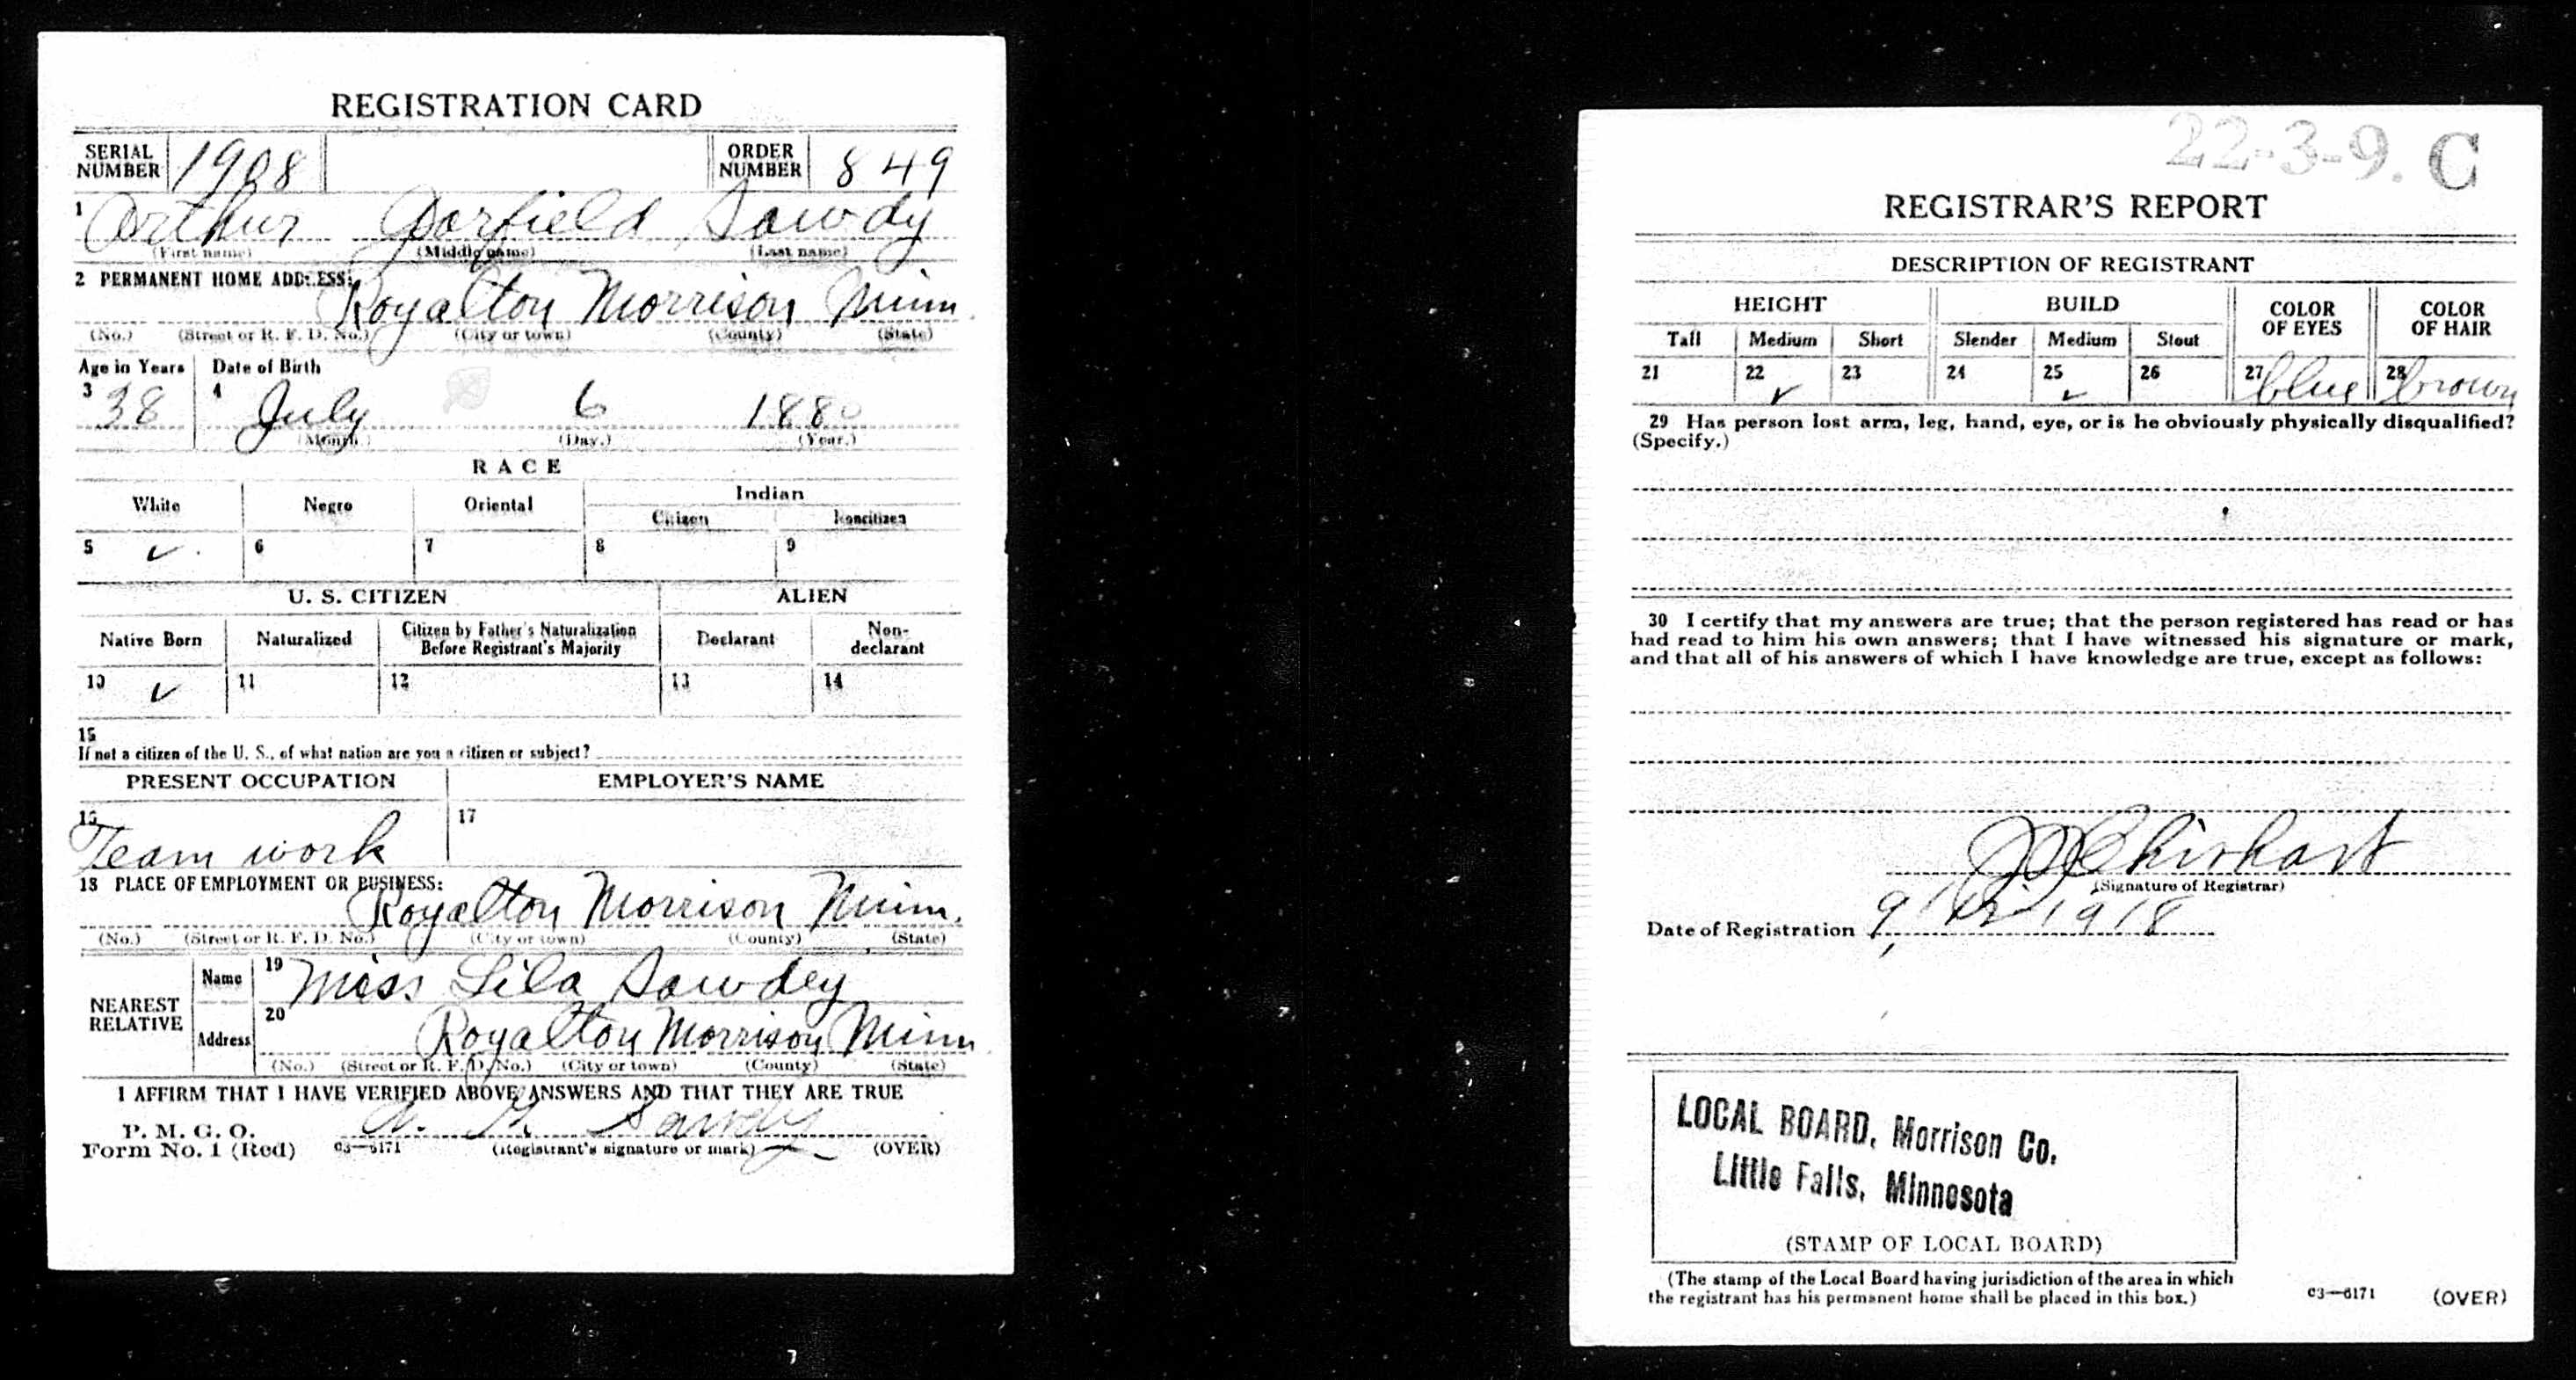 REGISTRATION CARD
SERIAL NUMBER 1908 ORDER NUMBER 849
1 Arthur Garfield Sawdy
(First name) (Middle name) (Last name)
2 PERMANENT HOME ADDRESS:
Royalton Morrison Minn
(No.) (Street or R. F. D. No.) (City or town) (County) (State)
Age in Years Date of Birth
3 38 4 July 6 1880
(Month.) (Day.) (Year.)
RACE
White Negro Oriental Indian
Citizen Noncitizen
5 ✓ 6 7 8 9
U. S. CITIZEN ALIEN
Native Born Naturalized Citizen by Father's Naturalization Before Registrant's Majority Declarant Non-declarant
10 ✓ 11 12 13 14
15
If not a citizen of the U. S., of what nation are you a citizen or subject?
PRESENT OCCUPATION EMPLOYER'S NAME
16 17
Team work
18 PLACE OF EMPLOYMENT OR BUSINESS:
Royalton Morrison Minn.
(No.) (Street or R. F. D. No.) (City or town) (County) (State)
NEAREST RELATIVE
Name 19 Miss Lila Sawdey
Address 20 Royalton Morrison Minn
(No.) (Street or R. F. D. No.) (City or town) (County) (State)
I AFFIRM THAT I HAVE VERIFIED ABOVE ANSWERS AND THAT THEY ARE TRUE
P. M. G. O.
Form No. 1 (Red) 03—6171 A. G. Sawdy
(Registrant's signature or mark) (OVER)
22-3-9. C
REGISTRAR'S REPORT
DESCRIPTION OF REGISTRANT
HEIGHT BUILD COLOR OF EYES COLOR OF HAIR
Tall Medium Short Slender Medium Stout
21 22 ✓ 23 24 25 ✓ 26 27 blue 28 brown
29 Has person lost arm, leg, hand, eye, or is he obviously physically disqualified?
(Specify.)
30 I certify that my answers are true; that the person registered has read or has
had read to him his own answers; that I have witnessed his signature or mark,
and that all of his answers of which I have knowledge are true, except as follows:
(Signature of Registrar)
Date of Registration 9/12/1918
LOCAL BOARD, Morrison Co.
Little Falls, Minnesota
(STAMP OF LOCAL BOARD)
(The stamp of the Local Board having jurisdiction of the area in which
the registrant has his permanent home shall be placed in this box.)
03—6171 (OVER)